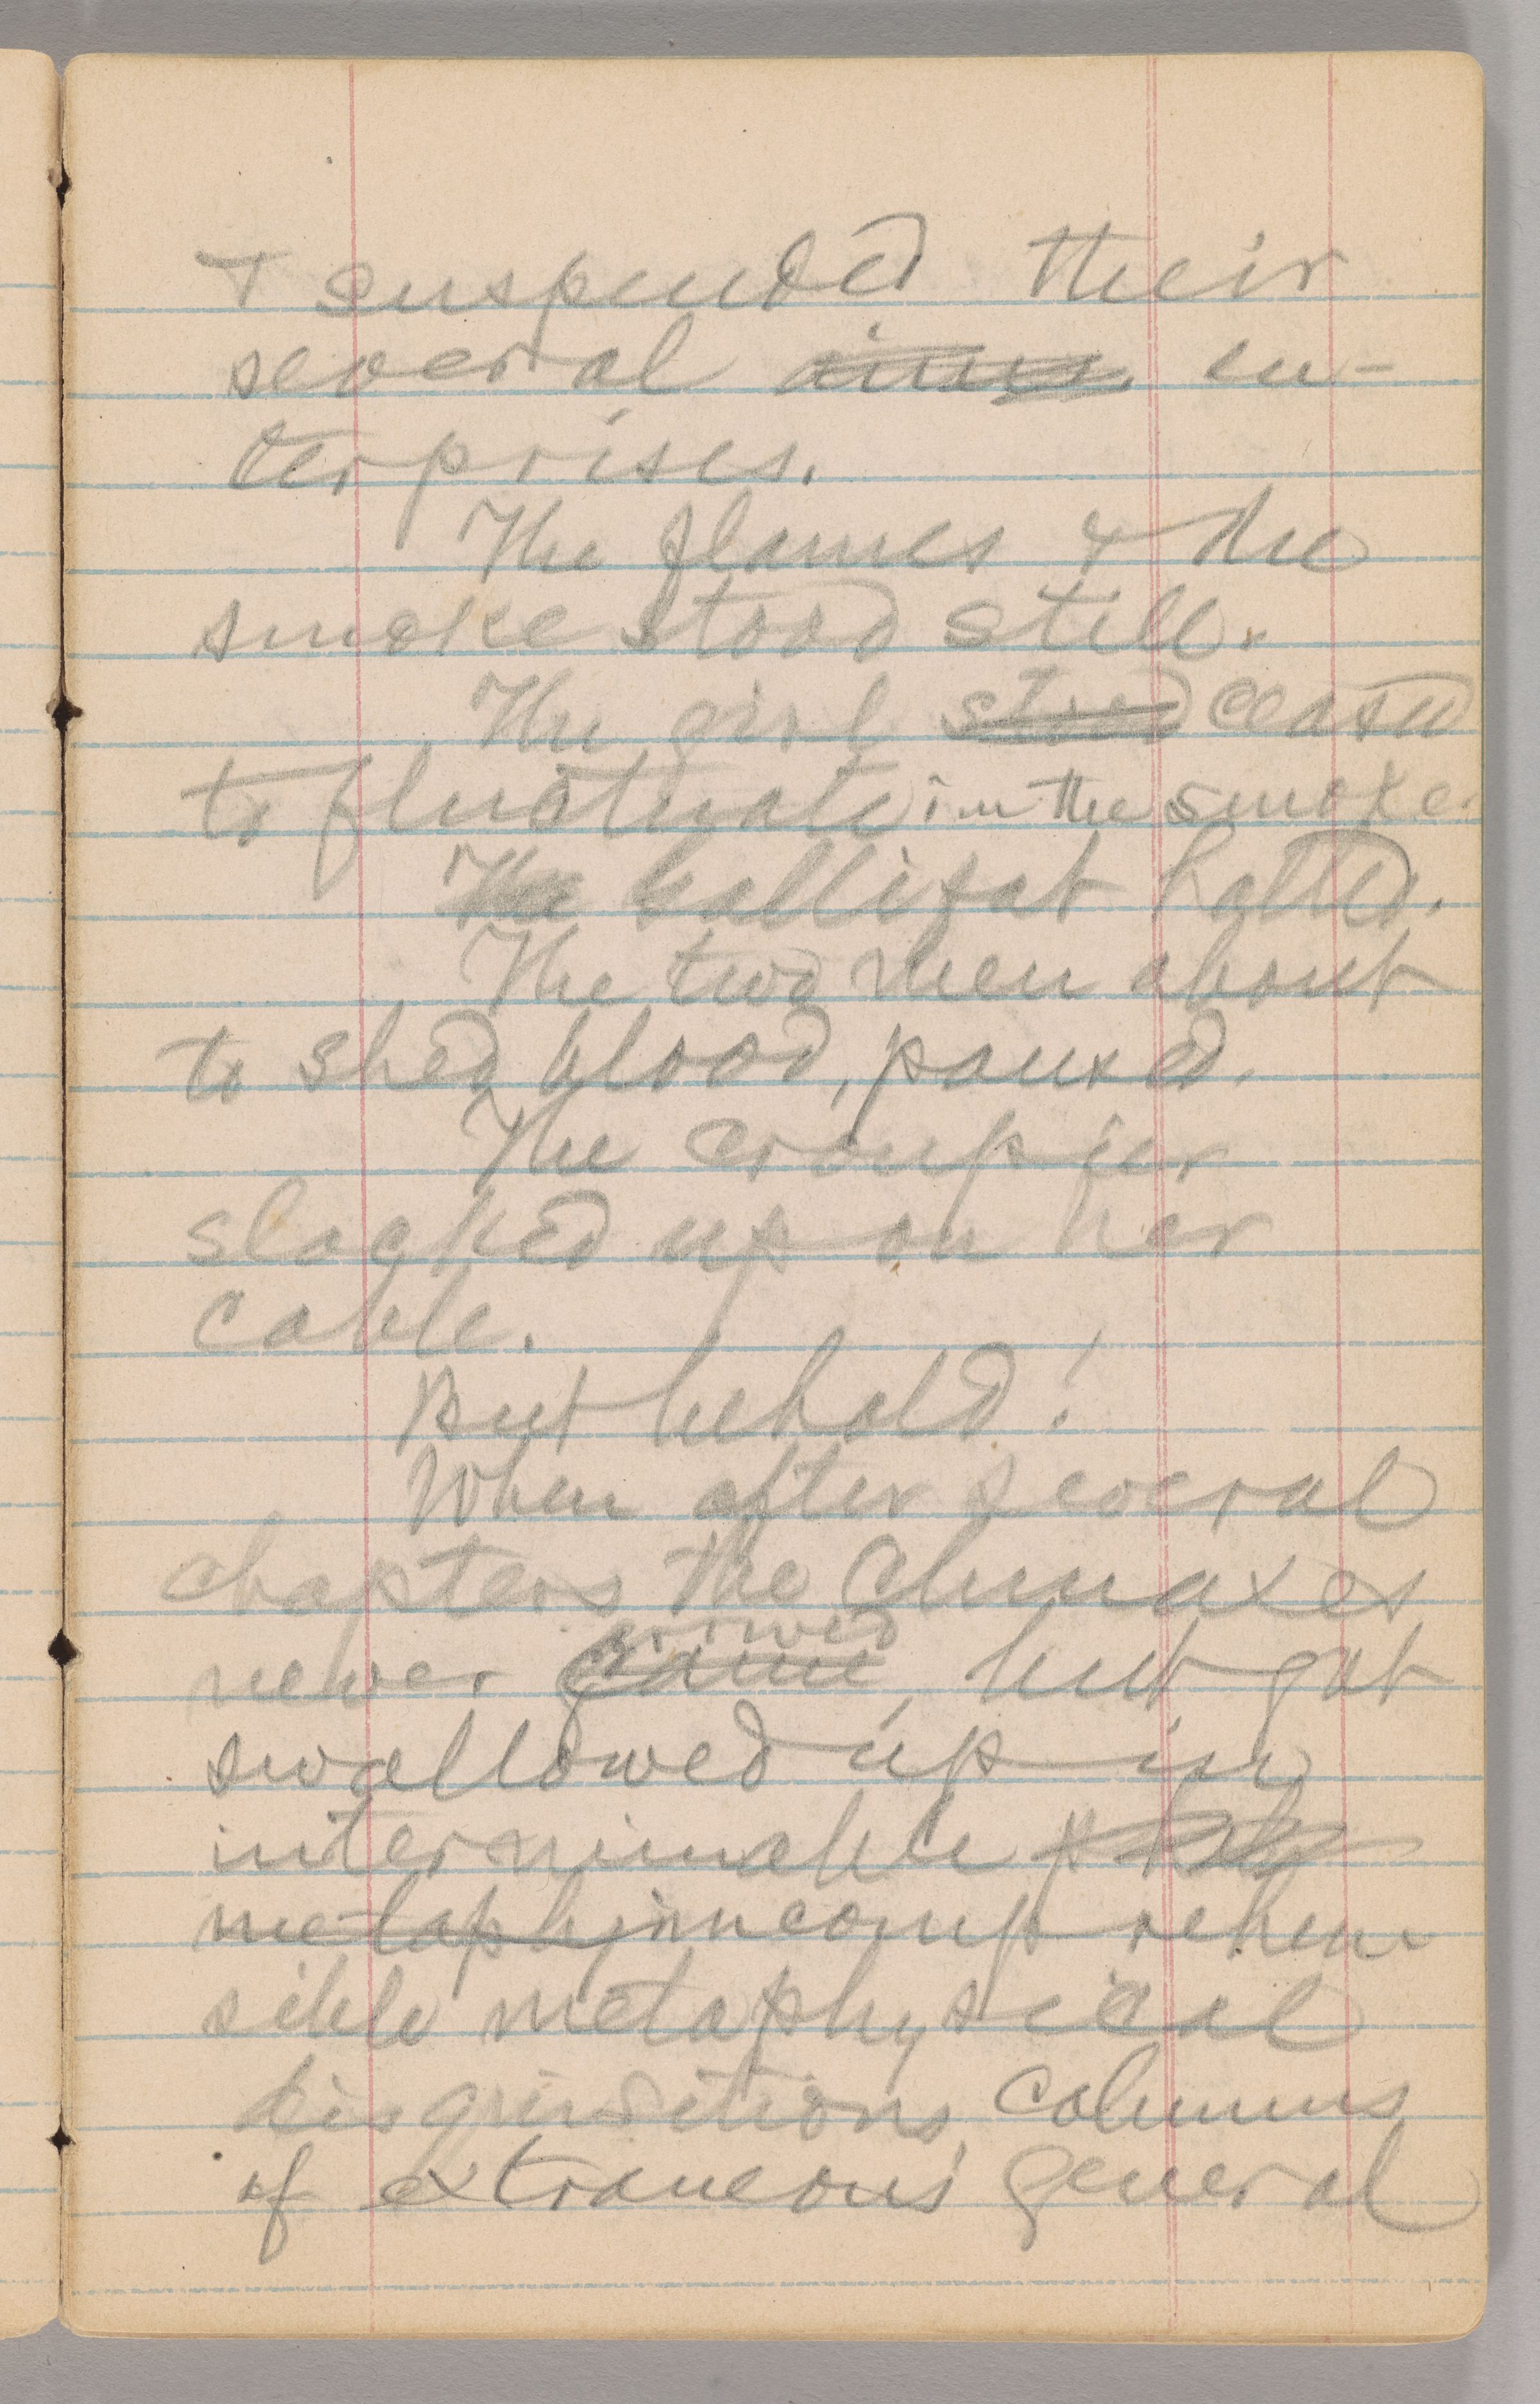 & suspended their
several aims en-
terprises.
The flames & the
smoke stood still.
The girl stood ceased
to fluctuate in the smoke.
The ballifat halted.
The two men about
to shed blood, paused.
The croupier
slacked up on her
cable.
But behold!
When after several
chapters the climaxes
arrived
never came, but got
swallowed up in
interminable
metaphy incomprehen-
sible metaphysical
disquisitions, columns
of extraneous general